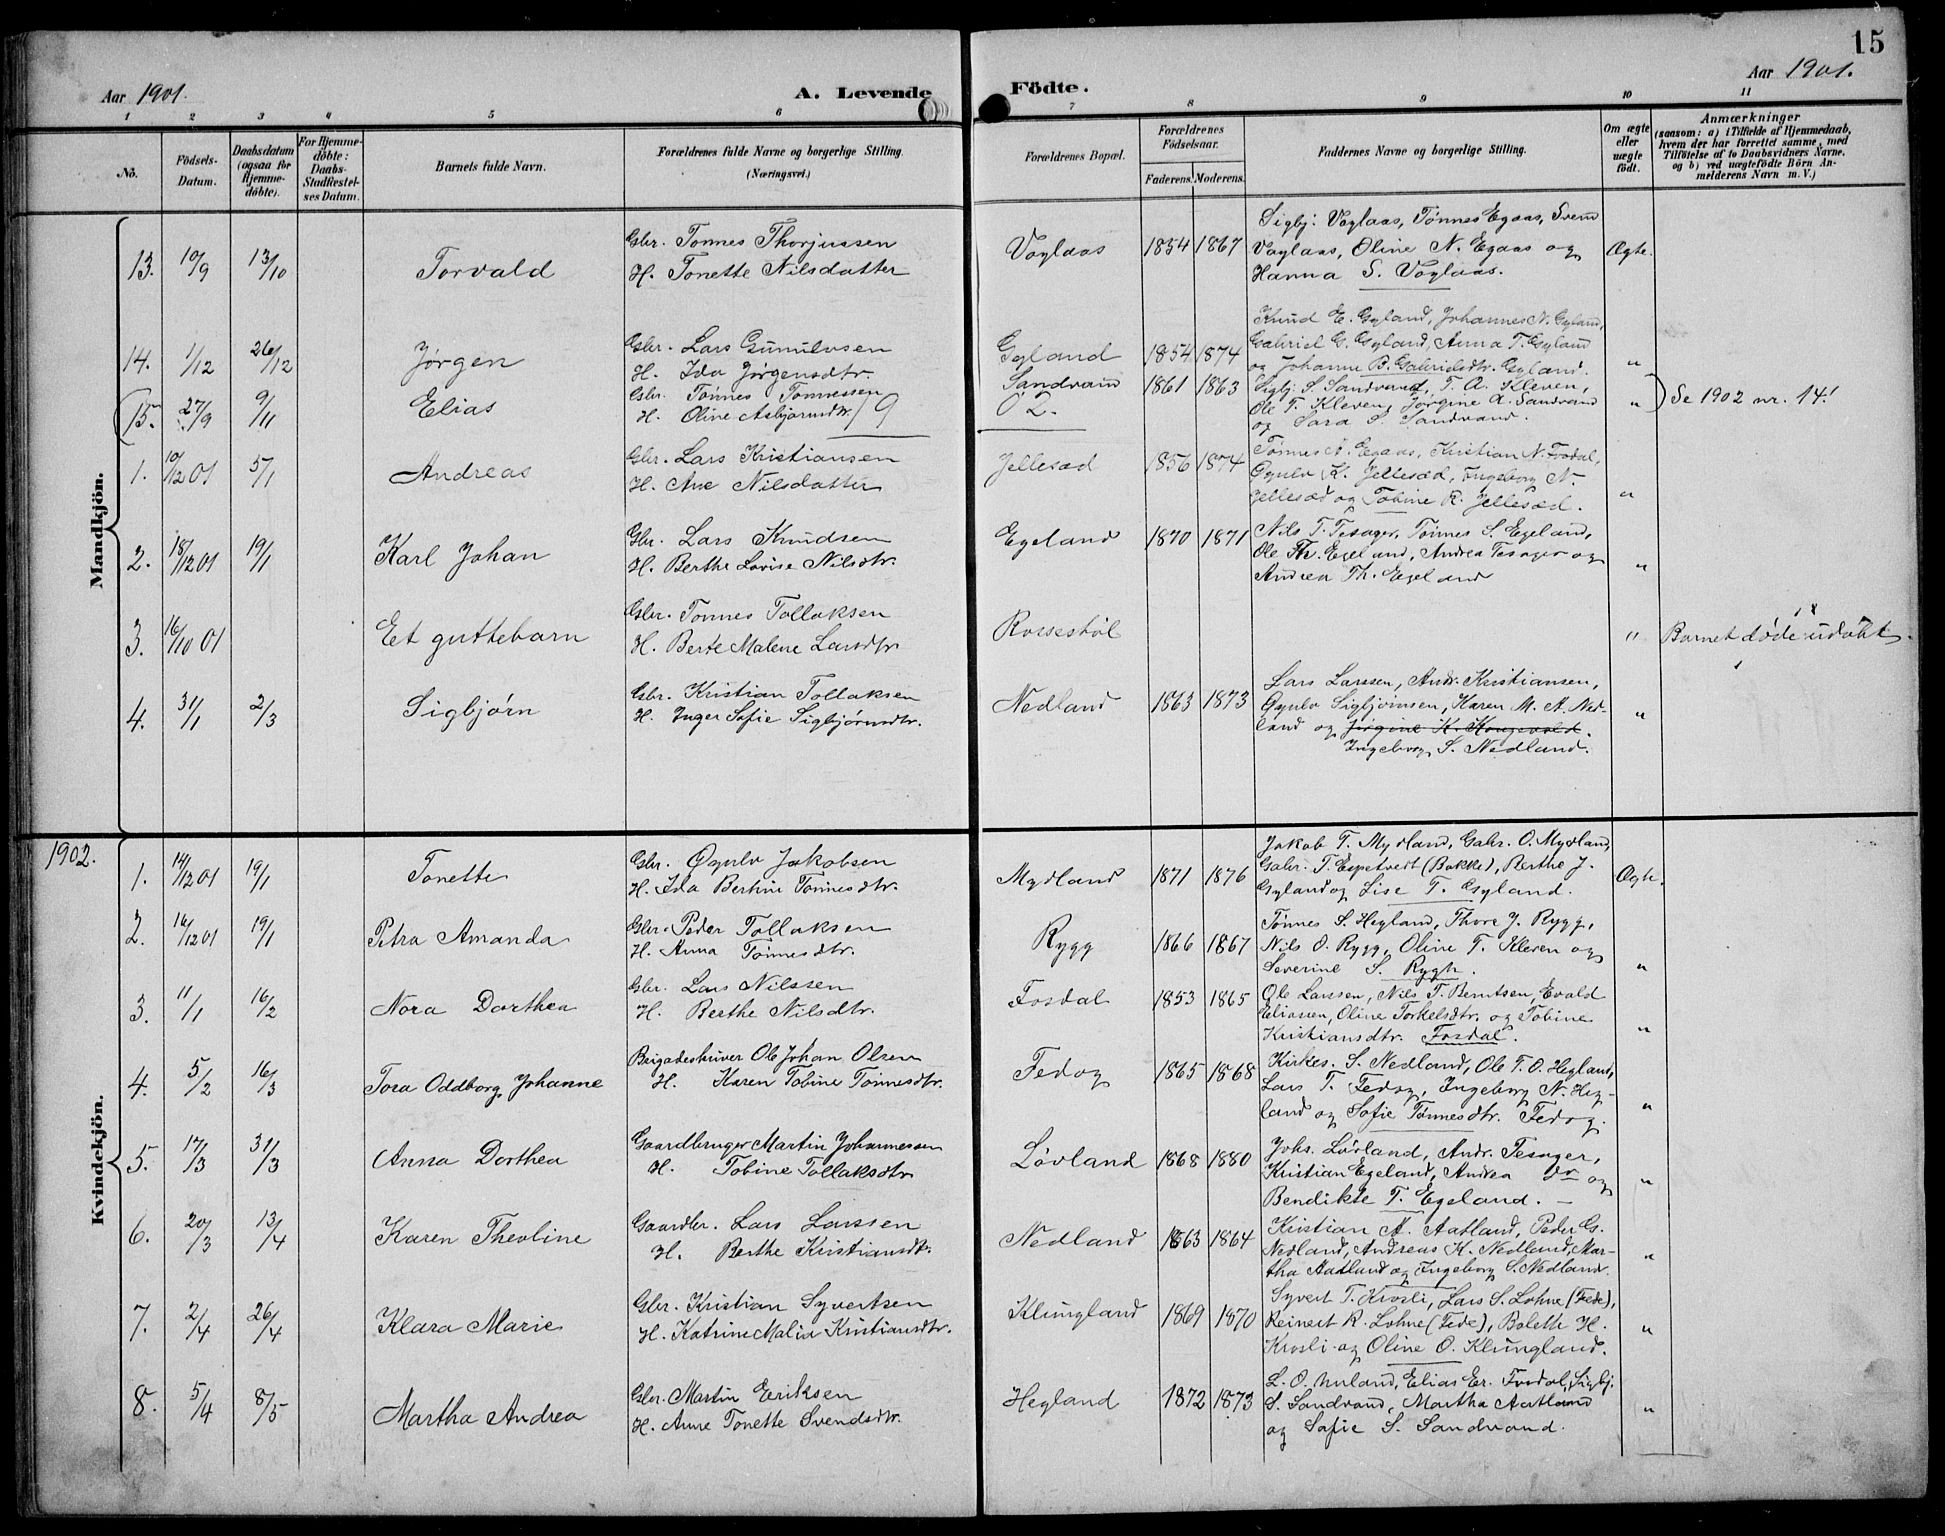 15
Aar 1901.
A. Levende
Födte.
Aar 1901.
1 2 3 4 5 6 7 8 9 10 11
No.
Födsels-
Datum.
Daabsdatum
(ogsaa for
Hjemme-
döbte).
For Hjemme-
döbte:
Daabs-
Stadfæstel-
ses Datum.
Barnets fulde Navn.
Forældrenes fulde Navne og borgerlige Stilling.
(Næringsvei.)
Forældrenes Bopæl.
Forældrenes
Födselsaar.
Faderens. Moderens.
Faddernes Navne og borgerlige Stilling.
Om ægte
eller
uægte
födt.
Anmærkninger
(saasom: a) i Tilfælde af Hjemmedaab,
hvem der har forrettet samme, med
Tilföielse af to Daabsvidners Navne,
og b) ved uægtefödte Börn An-
melderens Navn m. V.)
Mandkjön.
13. 10/9 13/10 Torvald
Gbr. Tønnes Thorjussen
H. Tonette Nilsdatter
Voglaas 1854 1867
Sigbj: Voglaas, Tønnes Egaas, Svend
Voglaas, Oline N. Egaas og
Hanna S. Voglaas.
Ægte.
14. 1/12 26/12 Jørgen
Gbr. Lars Gunulvsen
H. Ida Jørgensdtr.
Gyland 1854 1874
Knud E. Gyland, Johannes N. Gyland,
Gabriel G. Gyland, Anna T. Gyland
og Johanne B. Gabrielsdtr. Gyland.
"
(15. 27/9 9/11 Elias
Gbr. Tønnes Tønnessen
H. Oline Asbjørnsdtr. / 9
Sandvand 1861 1863
Ø 2.
Sigbj. S. Sandvand, T. A. Kleven,
Ole T. Kleven, Jørgine A. Sandvand
og Sara S. Sandvand.
" ) Se 1902 nr. 14!
1. 10/12 01 5/1 Andreas
Gbr. Lars Kristiansen
H. Ane Nilsdatter
Jellesæd 1856 1874
Tønnes A. Egaas, Kristian N. Fosdal,
Øgulv K. Jellesæd, Ingeborg N.
Jellesæd og Tobine R. Jellesæd.
"
2. 18/12 01 19/1 Karl Johan
Gbr. Lars Knudsen
H. Berthe Lovise Nilsdtr.
Egeland 1870 1871
Nils T. Tesager, Tønnes S. Egeland,
Ole Th. Egeland, Andrea Tesager og
Andrea Th. Egeland
"
3. 16/10 01 Et guttebarn
Gbr. Tønnes Tollaksen
H. Berte Malene Larsdtr
Rossestøl
" Barnet døde udøbt.
4. 31/1 2/3 Sigbjørn
Gbr. Kristian Tollaksen
H. Inger Sofie Sigbjørnsdtr.
Nedland 1863 1873
Lars Larssen, Andr. Kristiansen,
Øgulv Sigbjørnsen, Karen M. A. Ned-
land og Jørgine K. Kongevold.
Ingeborg S. Nedland.
"
1902.
Kvindekjön.
1. 14/12 01 19/1 Tonette
Gbr. Øgulv Jakobsen
H. Ida Bertine Tønnesdtr.
Mydland 1871 1876
Jakob T. Mydland, Gabr. O. Mydland,
Gabr. T. Espetvedt (Bakke), Berthe J.
Gyland og Lise T. Gyland.
Ægte.
2. 16/12 01 19/1 Petra Amanda
Gbr. Peder Tollaksen
H. Anna Tønnesdtr.
Rygg 1866 1867
Tønnes S. Hegland, Thore J. Rygg,
Nils O. Rygg, Oline T. Kleven og
Severine S. Rygh.
"
3. 11/1 16/2 Nora Dorthea
Gbr. Lars Nilssen
H. Berthe Nilsdtr.
Fosdal 1853 1865
Ole Larssen, Nils T. Berntsen, Evald
Eliassen, Oline Torkelsdtr. og Tobine
Kristiansdtr. Fosdal.
"
4. 5/2 16/3 Tora Oddborg Johanne
Brigadeskriver Ole Johan Olsen
H. Karen Tobine Tønnesdtr.
Fedog 1865 1868
Kirkes. S. Nedland, Ole T. O. Hegland,
Lars T. Fedog, Ingeborg N. Heg-
land og Sofie Tønnesdtr. Fedog.
"
5. 17/3 31/3 Anna Dorthea
Gaardbruger Martin Johannessen
H. Tobine Tollaksdtr
Løvland 1868 1880
Johs. Løvland, Andr. Tesager,
Kristian Egeland, Andrea do og
Bendikte T. Egeland.
"
6. 20/3 13/4 Karen Theoline
Gaardbr. Lars Larssen
H. Berthe Kristiansdtr.
Nedland 1863 1864
Kristian A. Aatland, Peder G.
Nedland, Andreas K. Nedland, Mar-
tha Aatland og Ingeborg S. Nedland.
"
7. 2/4 26/4 Klara Marie
Gbr. Kristian Syvertsen
H. Katrine Malia Kristiansdtr.
Klungland 1869 1870
Syvert T. Krosli, Lars S. Lohne (Fede),
Reinert R. Lohne (Fede), Bolette H.
Krosli og Oline O. Klungland.
"
8. 5/4 8/5 Martha Andrea
Gbr. Martin Eriksen
H. Anne Tonette Svendsdtr.
Hegland 1872 1873
L. O. Nuland, Elias Er. Fosdal, Sigbj.
S. Sandvand, Martha Aatland
og Sofie S. Sandvand.
"